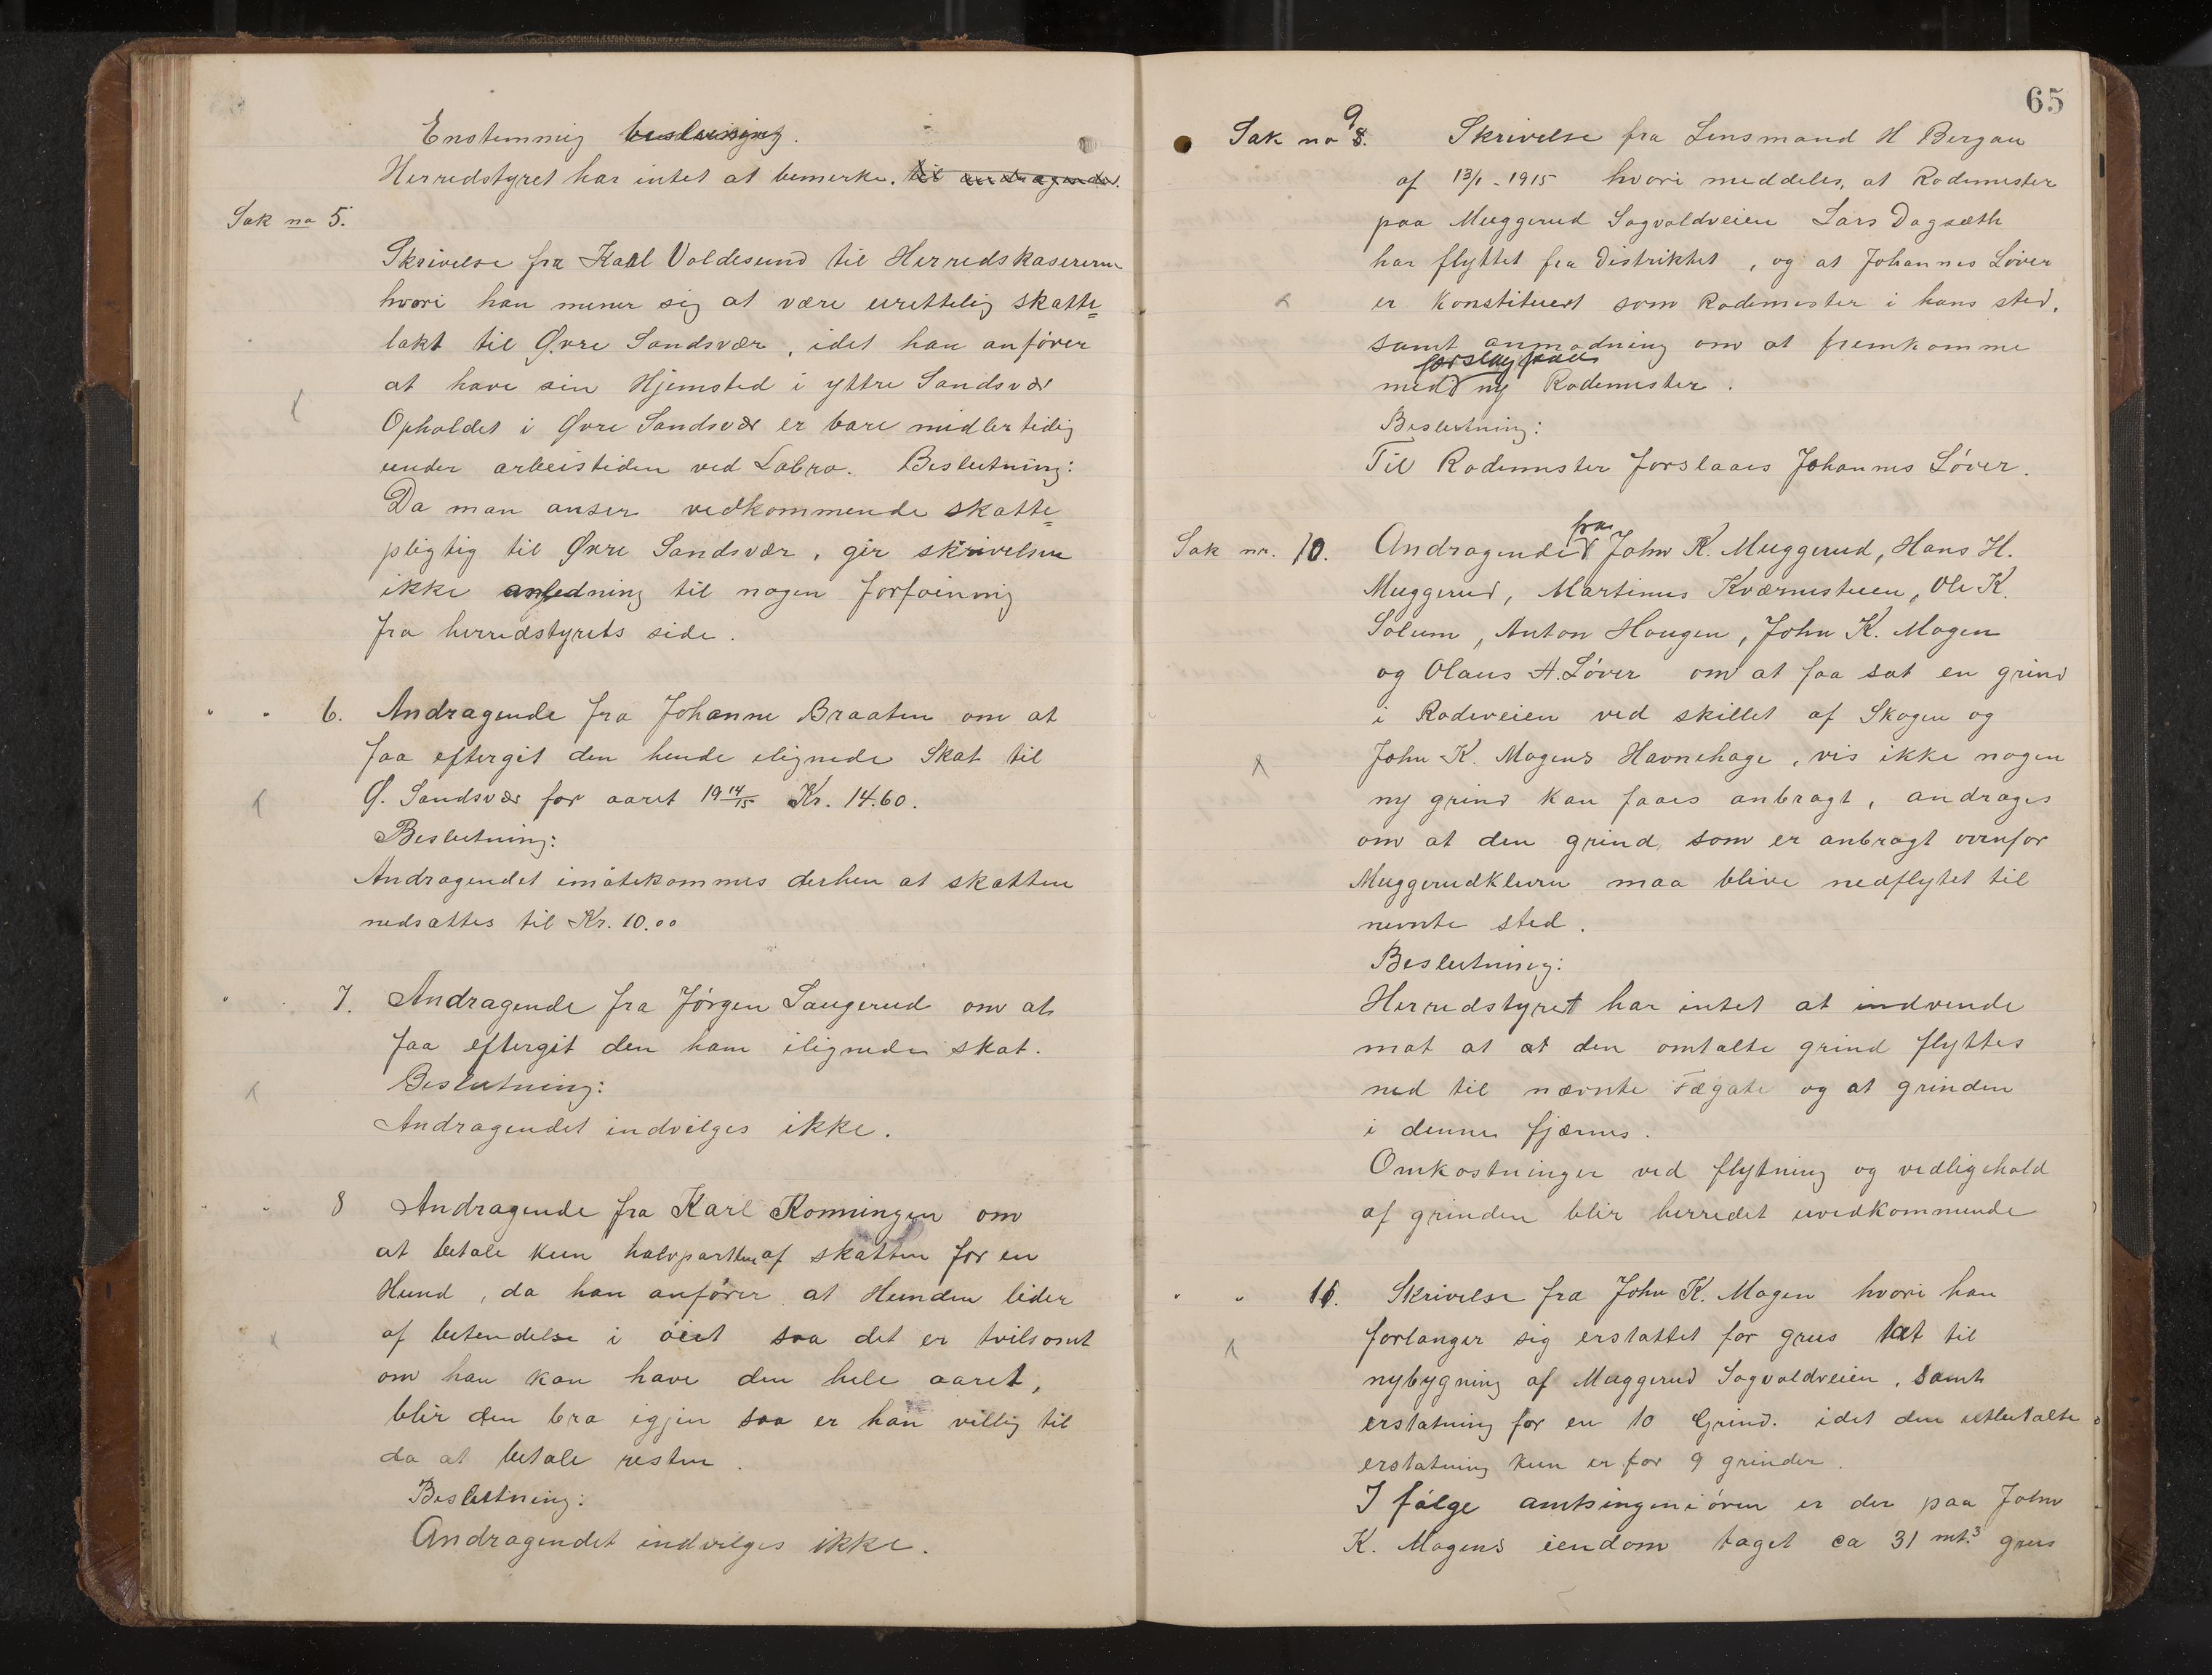 Enstemmig beslutning.
Herredstyret har intet at bemerke. til andragendet.
Sak no 5.
Skrivelse fra Karl Voldesund til Herredskasereren
hvori han mener sig at være urettelig skatte=
lakt til Øvre Sandsvær, idet han anfører
at have sin Hjemsted i yttre Sandsvær
Opholdet i Øvre Sandsvær er bare midlertidig
under arbeistiden ved Labro. Beslutning:
Da man anser vedkommende skatte=
pligtig til Øvre Sandsvær, gir skrivelsen
ikke anledning til nogen forføining
fra herredstyrets side.
" " 6. Andragende fra Johanne Braaten om at
faa eftergit den hende ilignede Skat til
Ø. Sandsvær for aaret 19 14/15 Kr. 14.60.
Beslutning:
Andragendet imøtekommes derhen at skatten
nedsættes til Kr. 10.00
" " 7. Andragende fra Jørgen Saugerud om at
faa eftergit den ham ilignede skat.
Beslutning:
Andragendet indvilges ikke.
" " 8 Andragende fra Karl Konningen om
at betale kun halvparten af skatten for en
Hund, da han anfører at Hunden lider
af betendelse i øiet saa det er tvilsomt
om han kan have den hele aaret,
blir den bra igjen saa er han villig til
da at betale resten.
Beslutning:
Andragendet indvilges ikke.
65
Sak no 9 8. Skrivelse fra Lensmand H Bergan
af 13/1 - 1915 hvori meddeles, at Rodemester
paa Muggerud Sagvoldveien Lars Dagsæth
har flyttet fra Distriktet, og at Johannes Løver
er Konstituert som Rodemester i hans sted,
samt anmodning om at fremkomme
med forslag paa ny Rodemester.
Beslutning:
Til Rodemester forslaaes Johannes Løver.
Sak nr. 10. Andragende fra John K. Muggerud, Hans H.
Muggerud, Martinus Kværnstuen, Ole K.
Solum, Anton Haugen, John K. Mogen
og Olaus A. Løver om at faa sat en grind
i Rodeveien ved skillet af Skogen og
John K. Mogens Havnehage, vis ikke nogen
ny grind kan faaes anbragt, andrages
om at den grind, som er anbragt ovenfor
Muggerudkleven maa blive nedflytet til
nevnte sted.
Beslutning:
Herredstyret har intet at indvende
mot at at den omtalte grind flyttes
ned til nævnte Fægate og at grinden
i denne fjærnes.
Omkostninger ved flytning og vedligehold
af grinden blir herredet uvedkommende
" " 11. Skrivelse fra John K. Mogen hvori han
forlanger sig erstattet for grus tat til
nybygning af Muggerud Sagvoldveien, samt
erstatning for en 10 Grind. idet den utbetalte
erstatning kun er for 9 grinder.
I følge amtsingeniøren er der paa John
K. Mogens eiendom taget ca 31 mt.3 grus